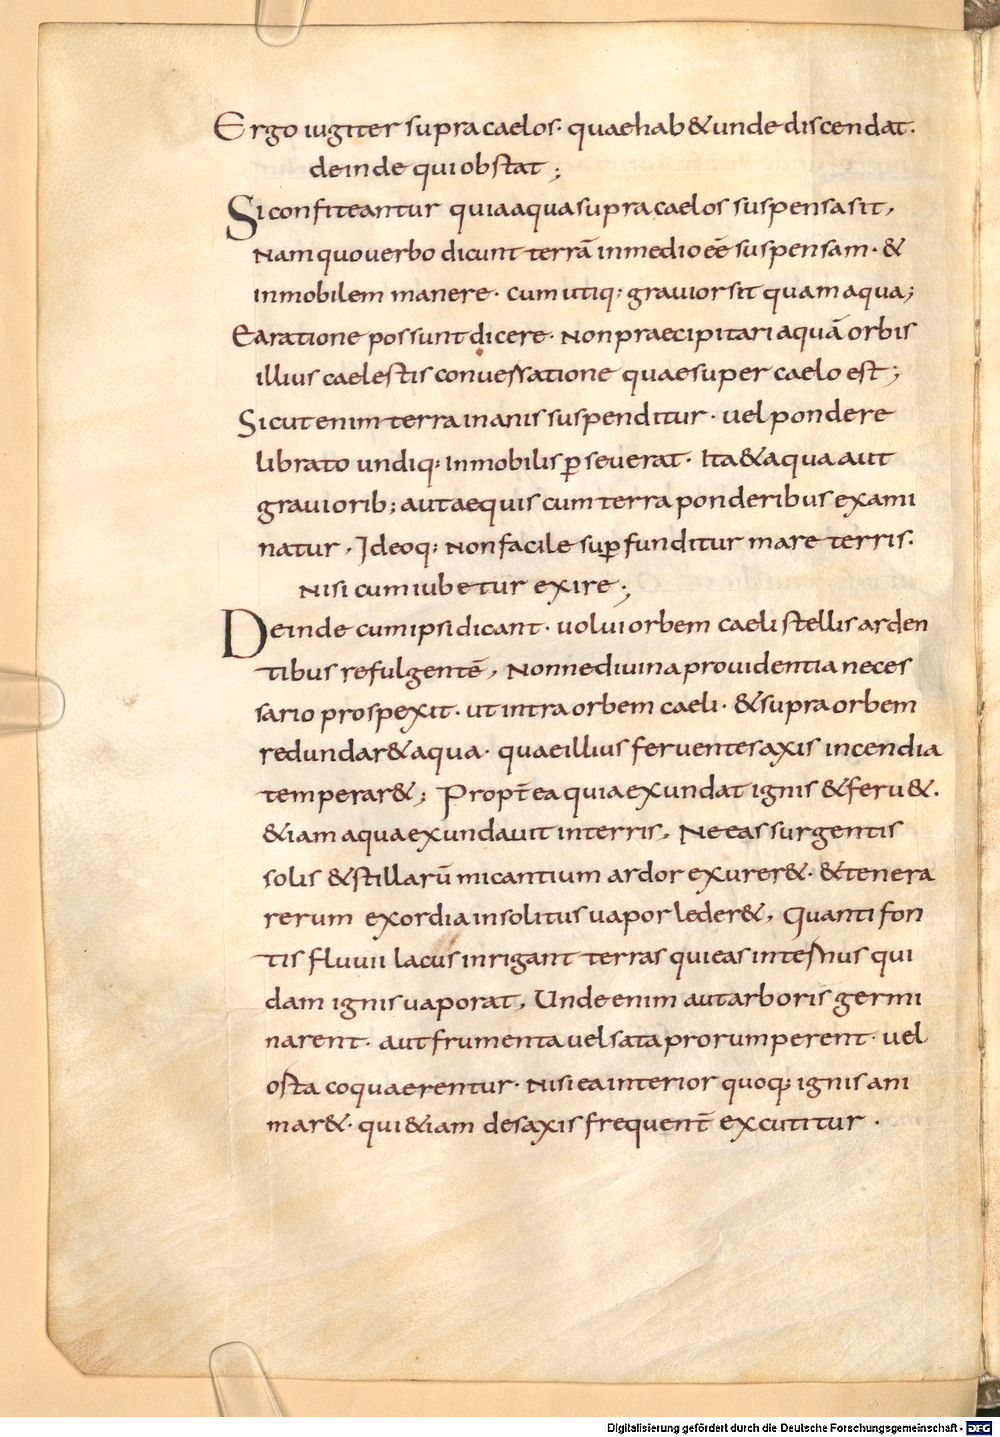 Ergo iugiter supra caelos· quae hab& unde discendat·
deinde qui obstat ;
Si confiteantur quia aqua supra caelos suspensa sit,
Nam quo uerbo dicunt terrā in medio eē suspensam· &
inmobilem manere· cum utiq: grauior sit quam aqua;
Ea ratione possunt dicere· Non praecipitari aquā orbis
illius caelestis conuersatione quae super caelo est;
Sicut enim terra inanis suspenditur· uel pondere
librato undiq: inmobilis ꝑseuerat· Ita & aqua aut
grauiorib; aut aequis cum terra ponderibus exami
natur, Ideoq: Non facile suꝑfunditur mare terris·
Nisi cum iubetur exire;
Deinde cum ipsi dicant· uolui orbem caeli stellis arden
tibus refulgentē, Nonne diuina prouidentia neces
sario prospexit· ut intra orbem caeli· & supra orbem
redundar& aqua· quae illius feruentes axis incendia
temperar&; Propt̄ea quia exundat ignis & feru&·
&iam aqua exundauit in terris, Ne eas surgentis
solis & stillarū micantium ardor exurer&· & tenera
rerum exordia insolitus uapor leder&, Quanti fon
tis fluuii lacus inrigant terras qui eas internus qui
dam ignis uaporat, Unde enim aut arboris germi
narent· aut frumenta uel sata prorumperent· uel
osta coquaerentur· Nisi ea interior quoq; ignis ani
mar&· qui &iam desaxis frequent̄ excutitur ·
Digitalisierung gefördert durch die Deutsche Forschungsgemeinschaft - DFG